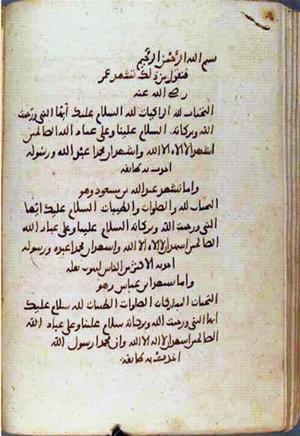 بسم الله الرحمن الرحيم
فنقول من ذلك تشهد عمر
رضي الله عنه
التحيات لله الزاكيات لله السلام عليك أيها النبي ورحمت
الله وبركاته السلام علينا وعلى عباد الله الصالحين
اشهد ان لا اله الا الله واشهد ان محمدا عبد الله ورسوله
اخذت به طائفة
واما تشهد عبد الله بن مسعود وهو
التحيات لله والصلوات والطيبات السلام عليك ايها
النبي ورحمت الله وبركاته السلام علينا وعلى عباد الله
الصالحين اشهد ان لا اله الا الله واشهد ان محمدا عبده ورسوله
اخذ به الاكثر من الناس لثبوت نقله
واما تشهد ابن عباس وهو
التحيات المباركات الصلوات الطيبات لله سلام عليك
ايها النبي ورحمت الله وبركاته سلام علينا وعلى عباد الله
الصالحين اشهد ان لا اله الا الله وان محمدا رسول الله
اخذت به طائفة